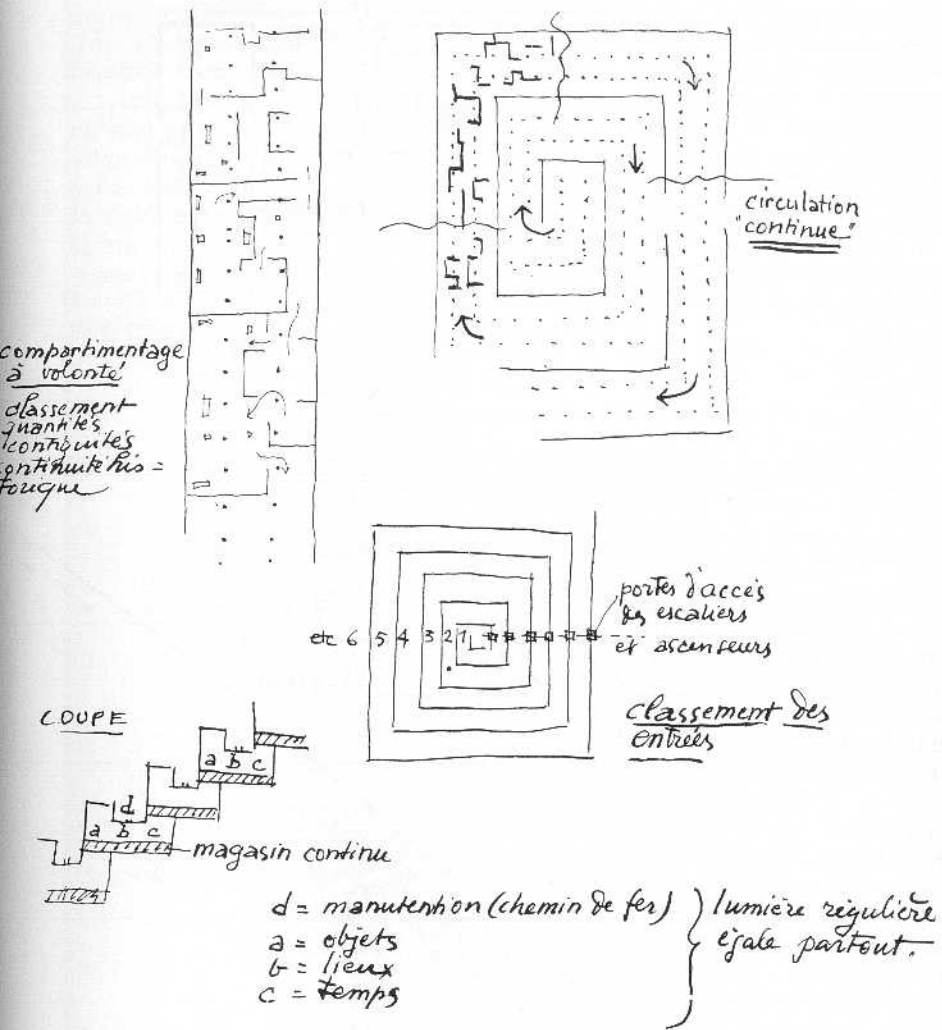 circulation
"continue"
compartimentage
à volonté
classement
quantités
contiguités
continuité his=
torique
portes d'accès
des escaliers
et ascenseurs
etc 6 5 4 3 2 1
classement des
entrées
COUPE
a b c
d
a b c
magasin continu
d = manutention (chemin de fer)
a = objets
b = lieux
c = temps
lumière régulière
égale partout.